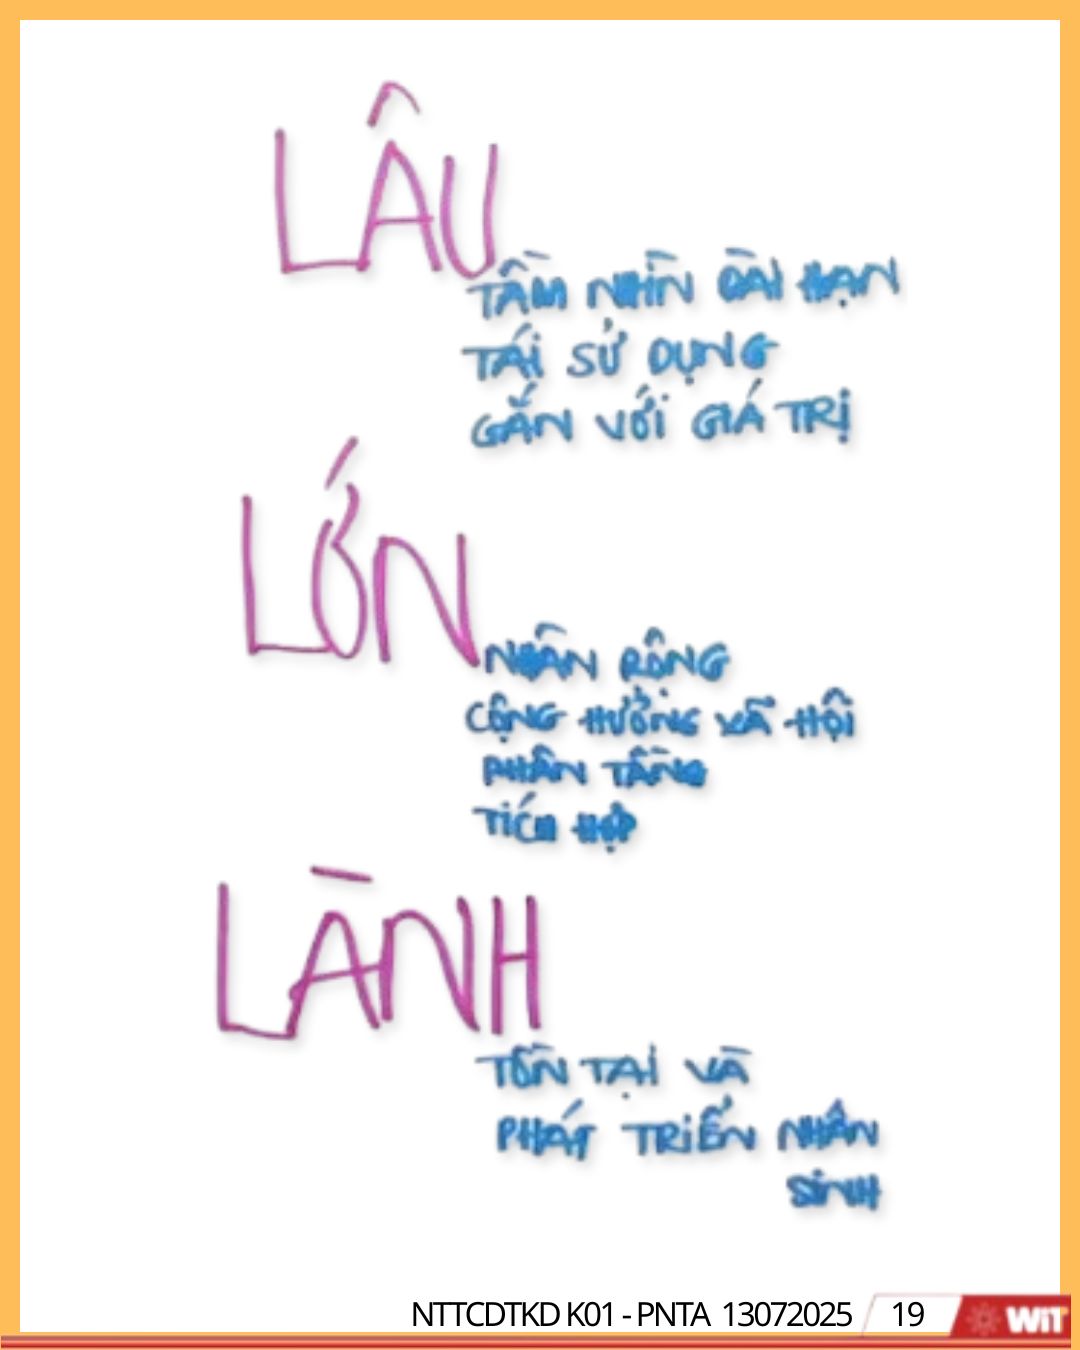 LÂU
TẦM NHÌN DÀI HẠN
TÁI SỬ DỤNG
GẮN VỚI GIÁ TRỊ
LỚN
NHÂN RỘNG
CỘNG HƯỞNG XÃ HỘI
PHÂN TẦNG
TÍCH HỢP
LÀNH
TỒN TẠI VÀ
PHÁT TRIỂN NHÂN
SINH
NTTCDTKD K01 - PNTA 13072025 19 WiT